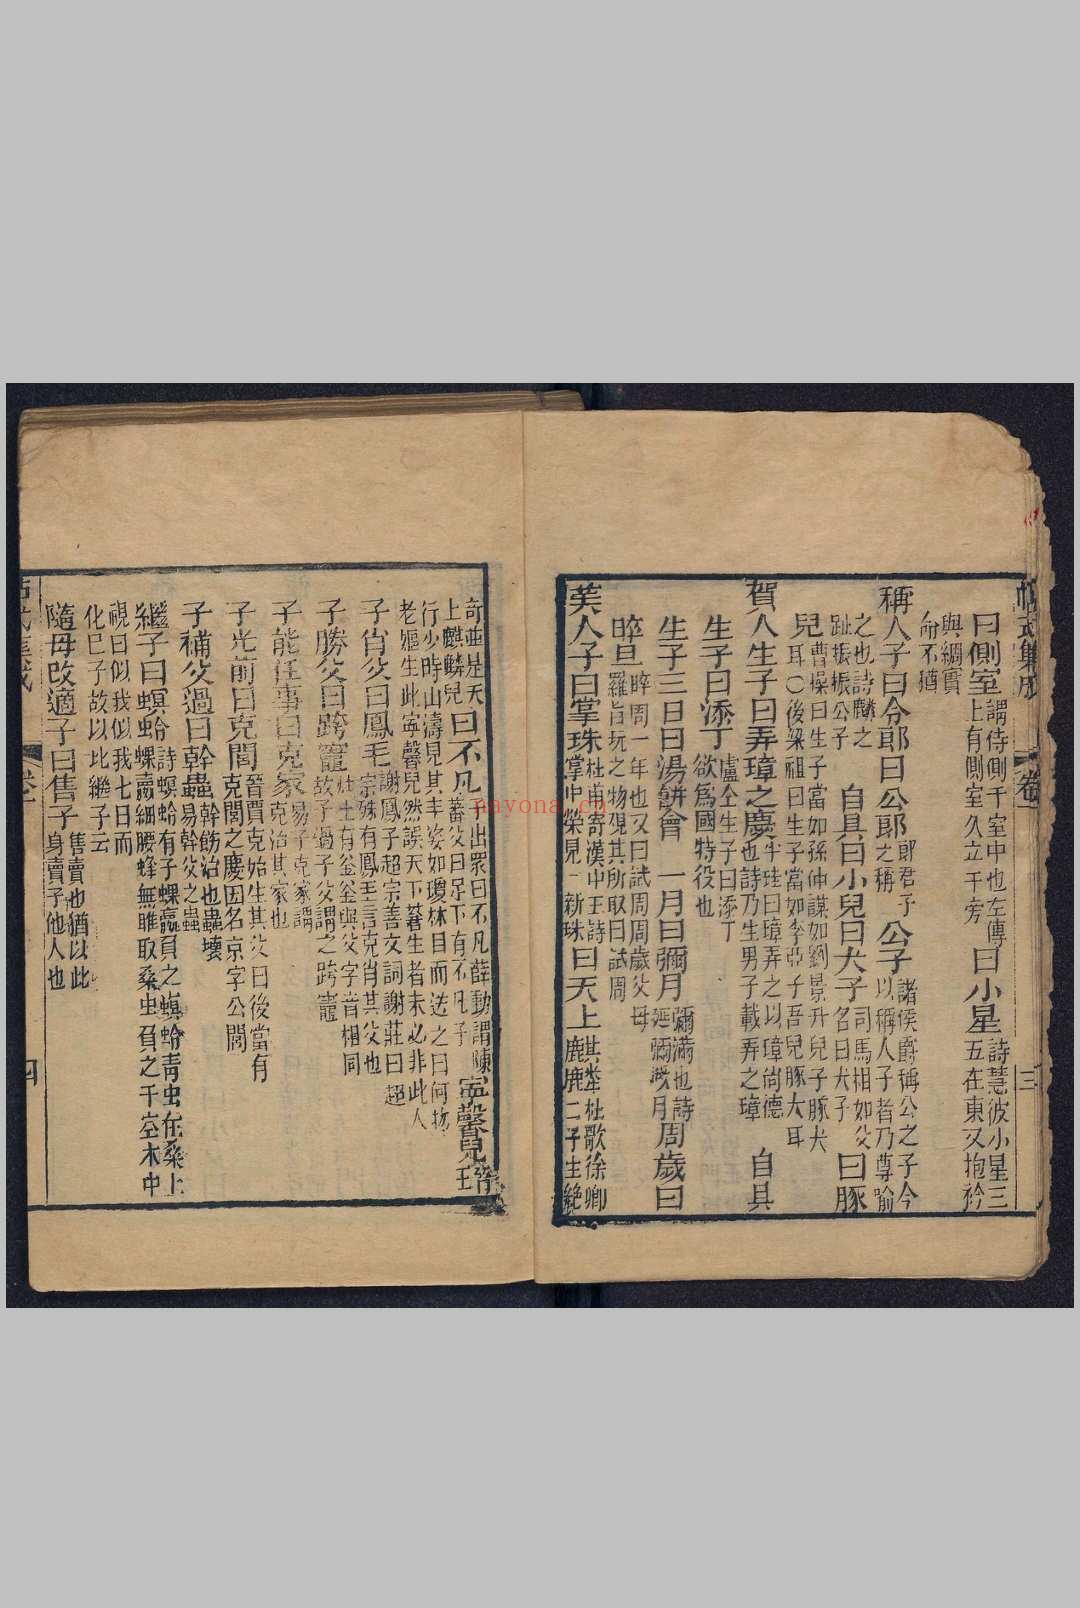 帖式集成 卷一 三
曰側室謂侍側于室中也左傳上有側室久立于旁曰小星詩嘒彼小星三五在東又抱衾
與裯寔命不猶
稱人子曰令郎曰公郎郎君子之稱公子諸侯爵稱公之子今以稱人子者乃尊喻
之也詩麟之趾振振公子自具曰小兒曰犬子司馬相如父名曰犬子曰豚
兒曹操曰生子當如孫仲謀如劉景升兒子豚犬耳〇後梁祖曰生子當如李亞子吾兒豚犬耳
賀人生子曰弄璋之慶半珪曰璋弄之以璋尚德也詩乃生男子載弄之璋自具
生子曰添丁盧仝生子曰添丁欲爲國特役也
生子三日曰湯餅會一月曰彌月彌滿也詩誕彌厥月周歲曰
晬旦晬周一年也又曰試周周歲父母羅旨玩之物覌其所取曰試周
美人子曰掌珠杜甫寄漢中王詩掌中榮見一新珠曰天上其莘杜歌徐卿二子生絶
奇並是天上麒麟兒曰不凡子出眾曰不凡薛勳謂陳蕃父曰足下有不凡子寧馨兒晉王
行少時山濤見其丰姿如瓊林目而送之曰何物老嫗生此寧馨兒然誤天下蒼生者未必非此人
子肖父曰鳳毛謝鳳子超宗善文詞謝莊曰超宗殊有鳳毛言克肖其父也
子勝父曰跨竈灶上有釜釜與父字音相同故子過子父謂之跨竈
子能任事曰克家易子克家謂克治其家也
子光前曰克閭晉賈克始生其父曰後當有克閭之慶因名京字公閭
子補父過曰幹蠱幹飭治也蠱壞易幹父之蠱
繼子曰螟蛉詩螟蛉有子蜾蠃負之螟蛉青虫在桑上蜾蠃細腰蜂無雎取桑虫負之于空木中
視曰似我似我七日而化巳子故以比繼子云
隨母改適子曰售子售賣也猶以此身賣子他人也
卷一 四